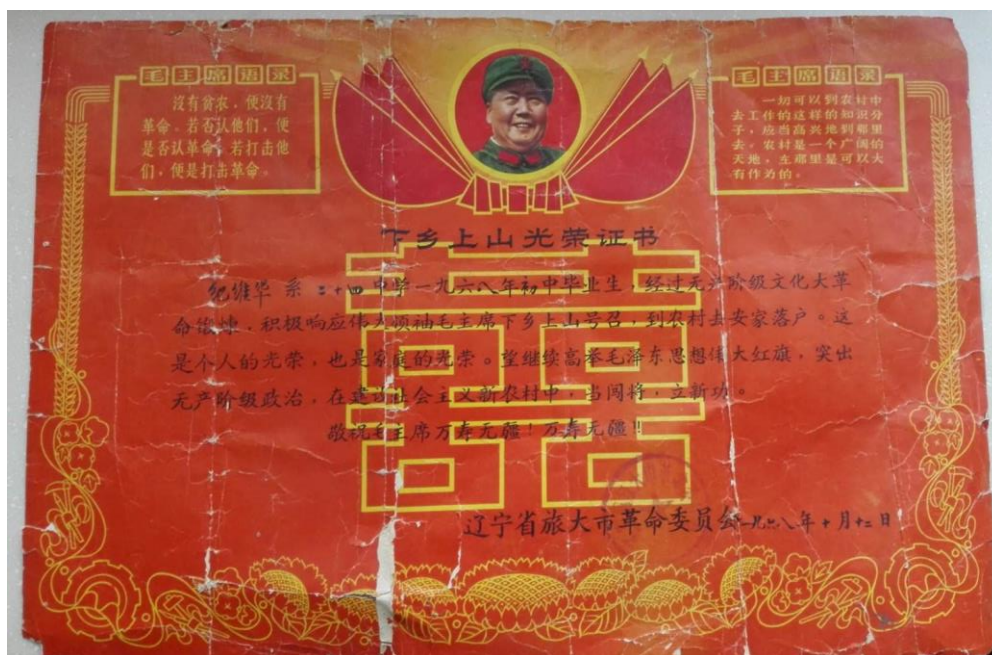 毛主席语录
沒有贫农，便沒有
革命。若否认他们，便
是否认革命，若打击他
们，便是打击革命。
毛主席语录
一切可以到农村中
去工作的这样的知识分
子，应当高兴地到那里
去。农村是一个广阔的
天地，在那里是可以大
有作为的。
下乡上山光荣证书
纪维华 系 二十四中学一九六八年初中毕业生，经过无产阶级文化大革
命锻炼，积极响应伟大领袖毛主席下乡上山号召，到农村去安家落户。这
是个人的光荣，也是家庭的光荣。望继续高举毛泽东思想伟大红旗，突出
无产阶级政治，在建设社会主义新农村中，当闯将，立新功。
敬祝毛主席万寿无疆！万寿无疆！！
囍
辽宁省旅大市革命委员会一九六八年十月十二日